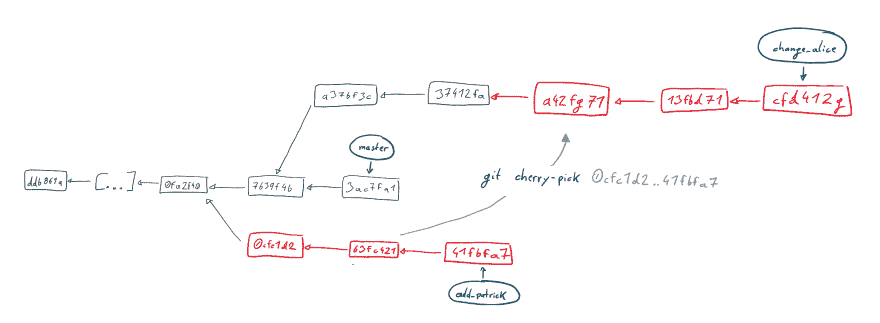 change_alice
a376f3c
37412fa
a42fg71
13fbd71
cfd412g
master
ddb861a
[...]
0fa2f40
7639f46
3ac7fa1
git cherry-pick 0cfc1d2..41fbfa7
0cfc1d2
63fc421
41fbfa7
add_patrick